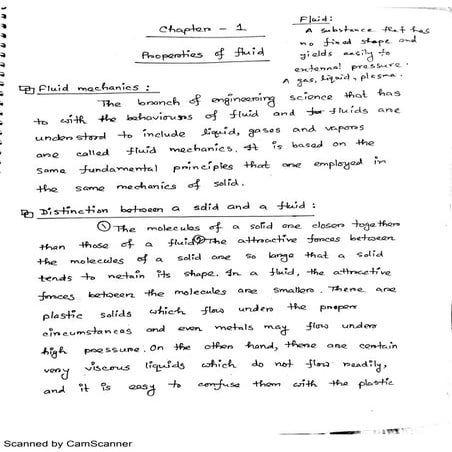 Chapter - 1
Properties of fluid
Fluid:
A substance that has
no fixed shape and
yields easily to
external pressure.
A gas, liquid, plasma.
Fluid mechanics:
The branch of engineering science that has
to with the behaviours of fluid and fluids are
understood to include liquid, gases and vapors
are called fluid mechanics. It is based on the
same fundamental principles that are employed in
the same mechanics of solid.
Distinction between a solid and a fluid:
① The molecules of a solid are closer together
than those of a fluid ② The attractive forces between
the molecules of a solid are so large that a solid
tends to retain its shape. In a fluid, the attractive
forces between the molecules are smaller. There are
plastic solids which flow under the proper
circumstances and even metals may flow under
high pressure. On the other hand, there are certain
very viscous liquids which do not flow readily,
and it is easy to confuse them with the plastic
Scanned by CamScanner